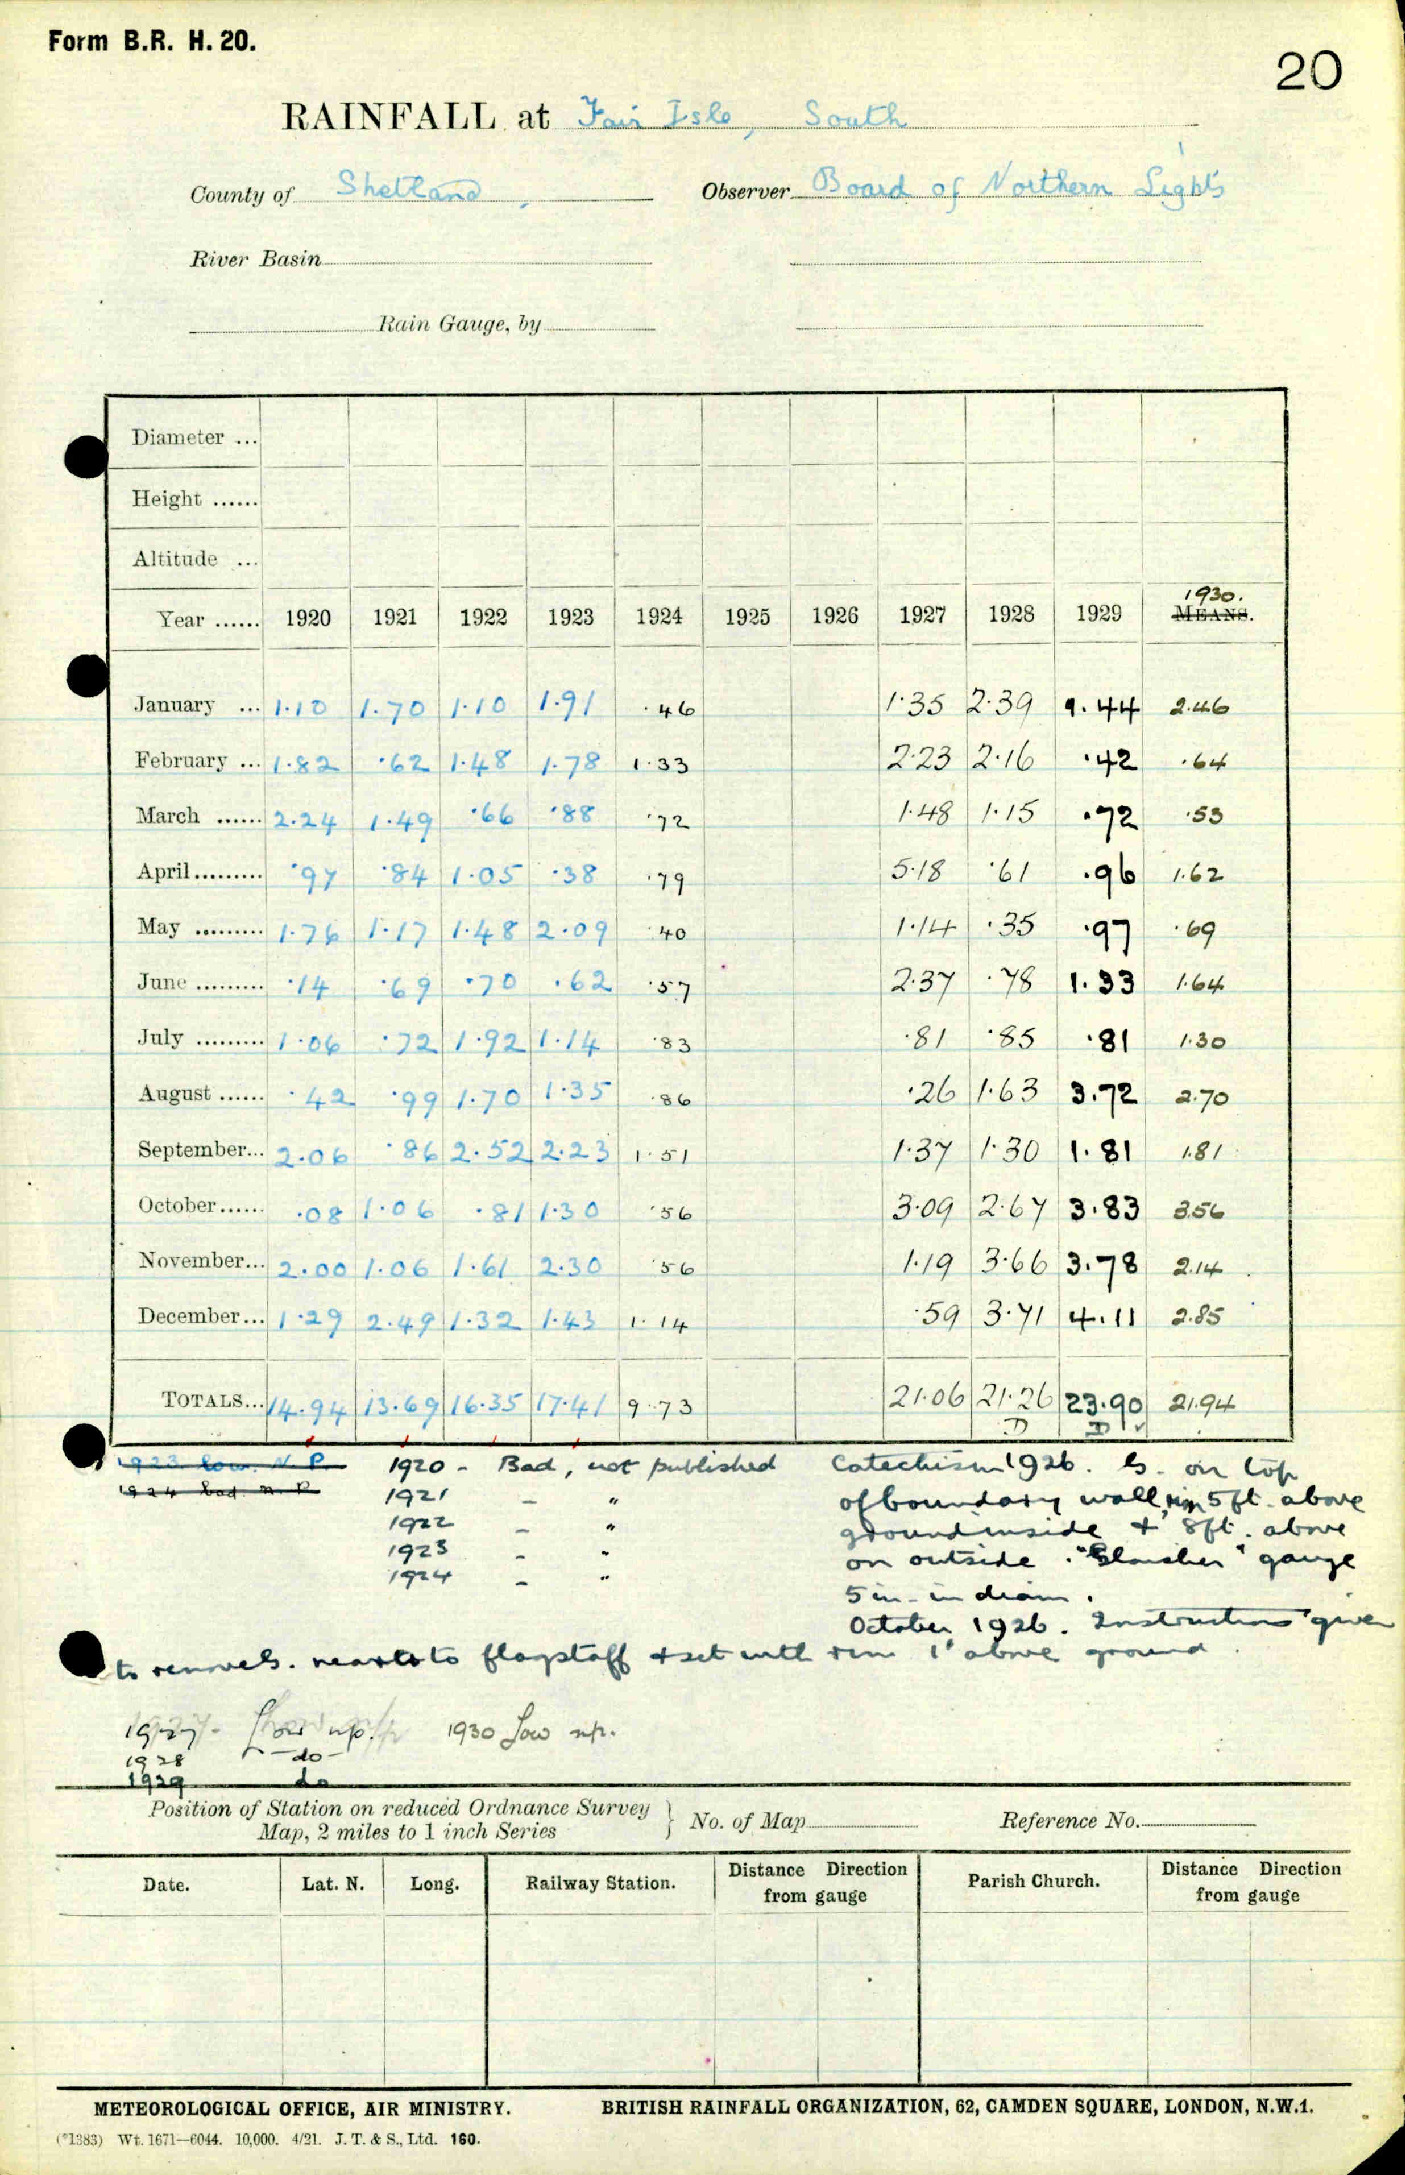 Form B.R. H. 20.
20
RAINFALL at Fair Isle, South
County of Shetland, Observer Board of Northern Lights
River Basin
Rain Gauge, by
Diameter ...
Height ......
Altitude ...
1930.
Year ...... 1920 1921 1922 1923 1924 1925 1926 1927 1928 1929 MEANS.
January ... 1.10 1.70 1.10 1.91 .46 1.35 2.39 1.44 2.46
February ... 1.82 .62 1.48 1.78 1.33 2.23 2.16 .42 .64
March ...... 2.24 1.49 .66 .88 .72 1.48 1.15 .72 .53
April ......... .97 .84 1.05 .38 .79 5.18 .61 .96 1.62
May ......... 1.76 1.17 1.48 2.09 .40 1.14 .35 .97 .69
June ......... .14 .69 .70 .62 .57 2.37 .78 1.33 1.64
July ......... 1.06 .72 1.92 1.14 .83 .81 .85 .81 1.30
August ...... .42 .99 1.70 1.35 .86 .26 1.63 3.72 2.70
September... 2.06 .86 2.52 2.23 1.51 1.37 1.30 1.81 1.81
October...... .08 1.06 .81 1.30 .56 3.09 2.67 3.83 3.56
November... 2.00 1.06 1.61 2.30 .56 1.19 3.66 3.78 2.14
December... 1.29 2.49 1.32 1.43 1.14 .59 3.71 4.11 2.85
TOTALS... 14.94 13.69 16.35 17.41 9.73 21.06 21.26 23.90 21.94
D D ✓
1923 low. N.P.
1924 bad n.P
1920 - Bad, not published
1921 - "
1922 - "
1923 - "
1924 - "
Catechism 1926. G. on top
of boundary wall, rim 5ft. above
ground inside + 8ft. above
on outside. "Glaisher" gauge
5 in. in diam.
October 1926. Instructions given
to remove G. nearer to flagstaff + set with rim 1' above ground.
1927 Low np. 1930 Low np.
1928 -do-
1929 do
Position of Station on reduced Ordnance Survey
Map, 2 miles to 1 inch Series } No. of Map Reference No.
Date. Lat. N. Long. Railway Station. Distance Direction from gauge Parish Church. Distance Direction from gauge
METEOROLOGICAL OFFICE, AIR MINISTRY. BRITISH RAINFALL ORGANIZATION, 62, CAMDEN SQUARE, LONDON, N.W.1.
(*1383) Wt. 1671—6044. 10,000. 4/21. J. T. & S., Ltd. 160.